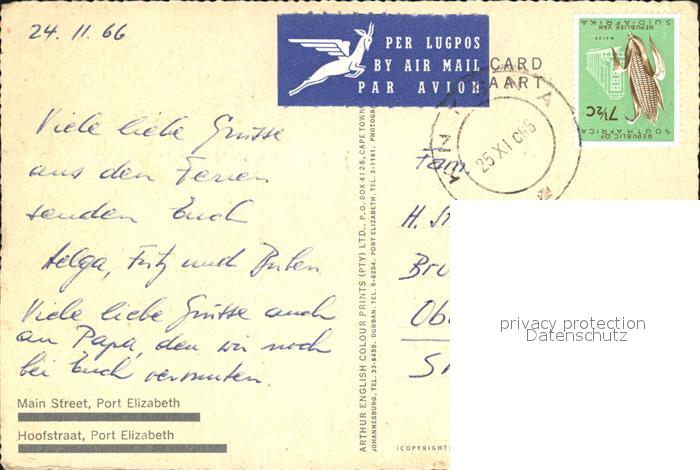 24. 11. 66
PER LUGPOS
BY AIR MAIL
PAR AVION
CARD
AART
REPUBLIEK VAN
SUID-AFRIKA
MAIZE
7½C
REPUBLIC OF
SOUTH AFRICA
25 XI 66
Viele liebe Grüsse
aus den Ferien
senden Euch
Helga, Fritz und
Viele liebe Grüsse auch
an Papa, den wir noch
bei Euch vermuten.
Main Street, Port Elizabeth
Hoofstraat, Port Elizabeth
ARTHUR ENGLISH COLOUR PRINTS (PTY) LTD., P.O. BOX 4126, CAPE TOWN
JOHANNESBURG, TEL. 33-9450. DURBAN, TEL. 6-6204. PORT ELIZABETH, TEL. 2-1161. PHOTOGR
Fam.
H. St
Bru
Ob
S
(COPYRIGHT
privacy protection
Datenschutz